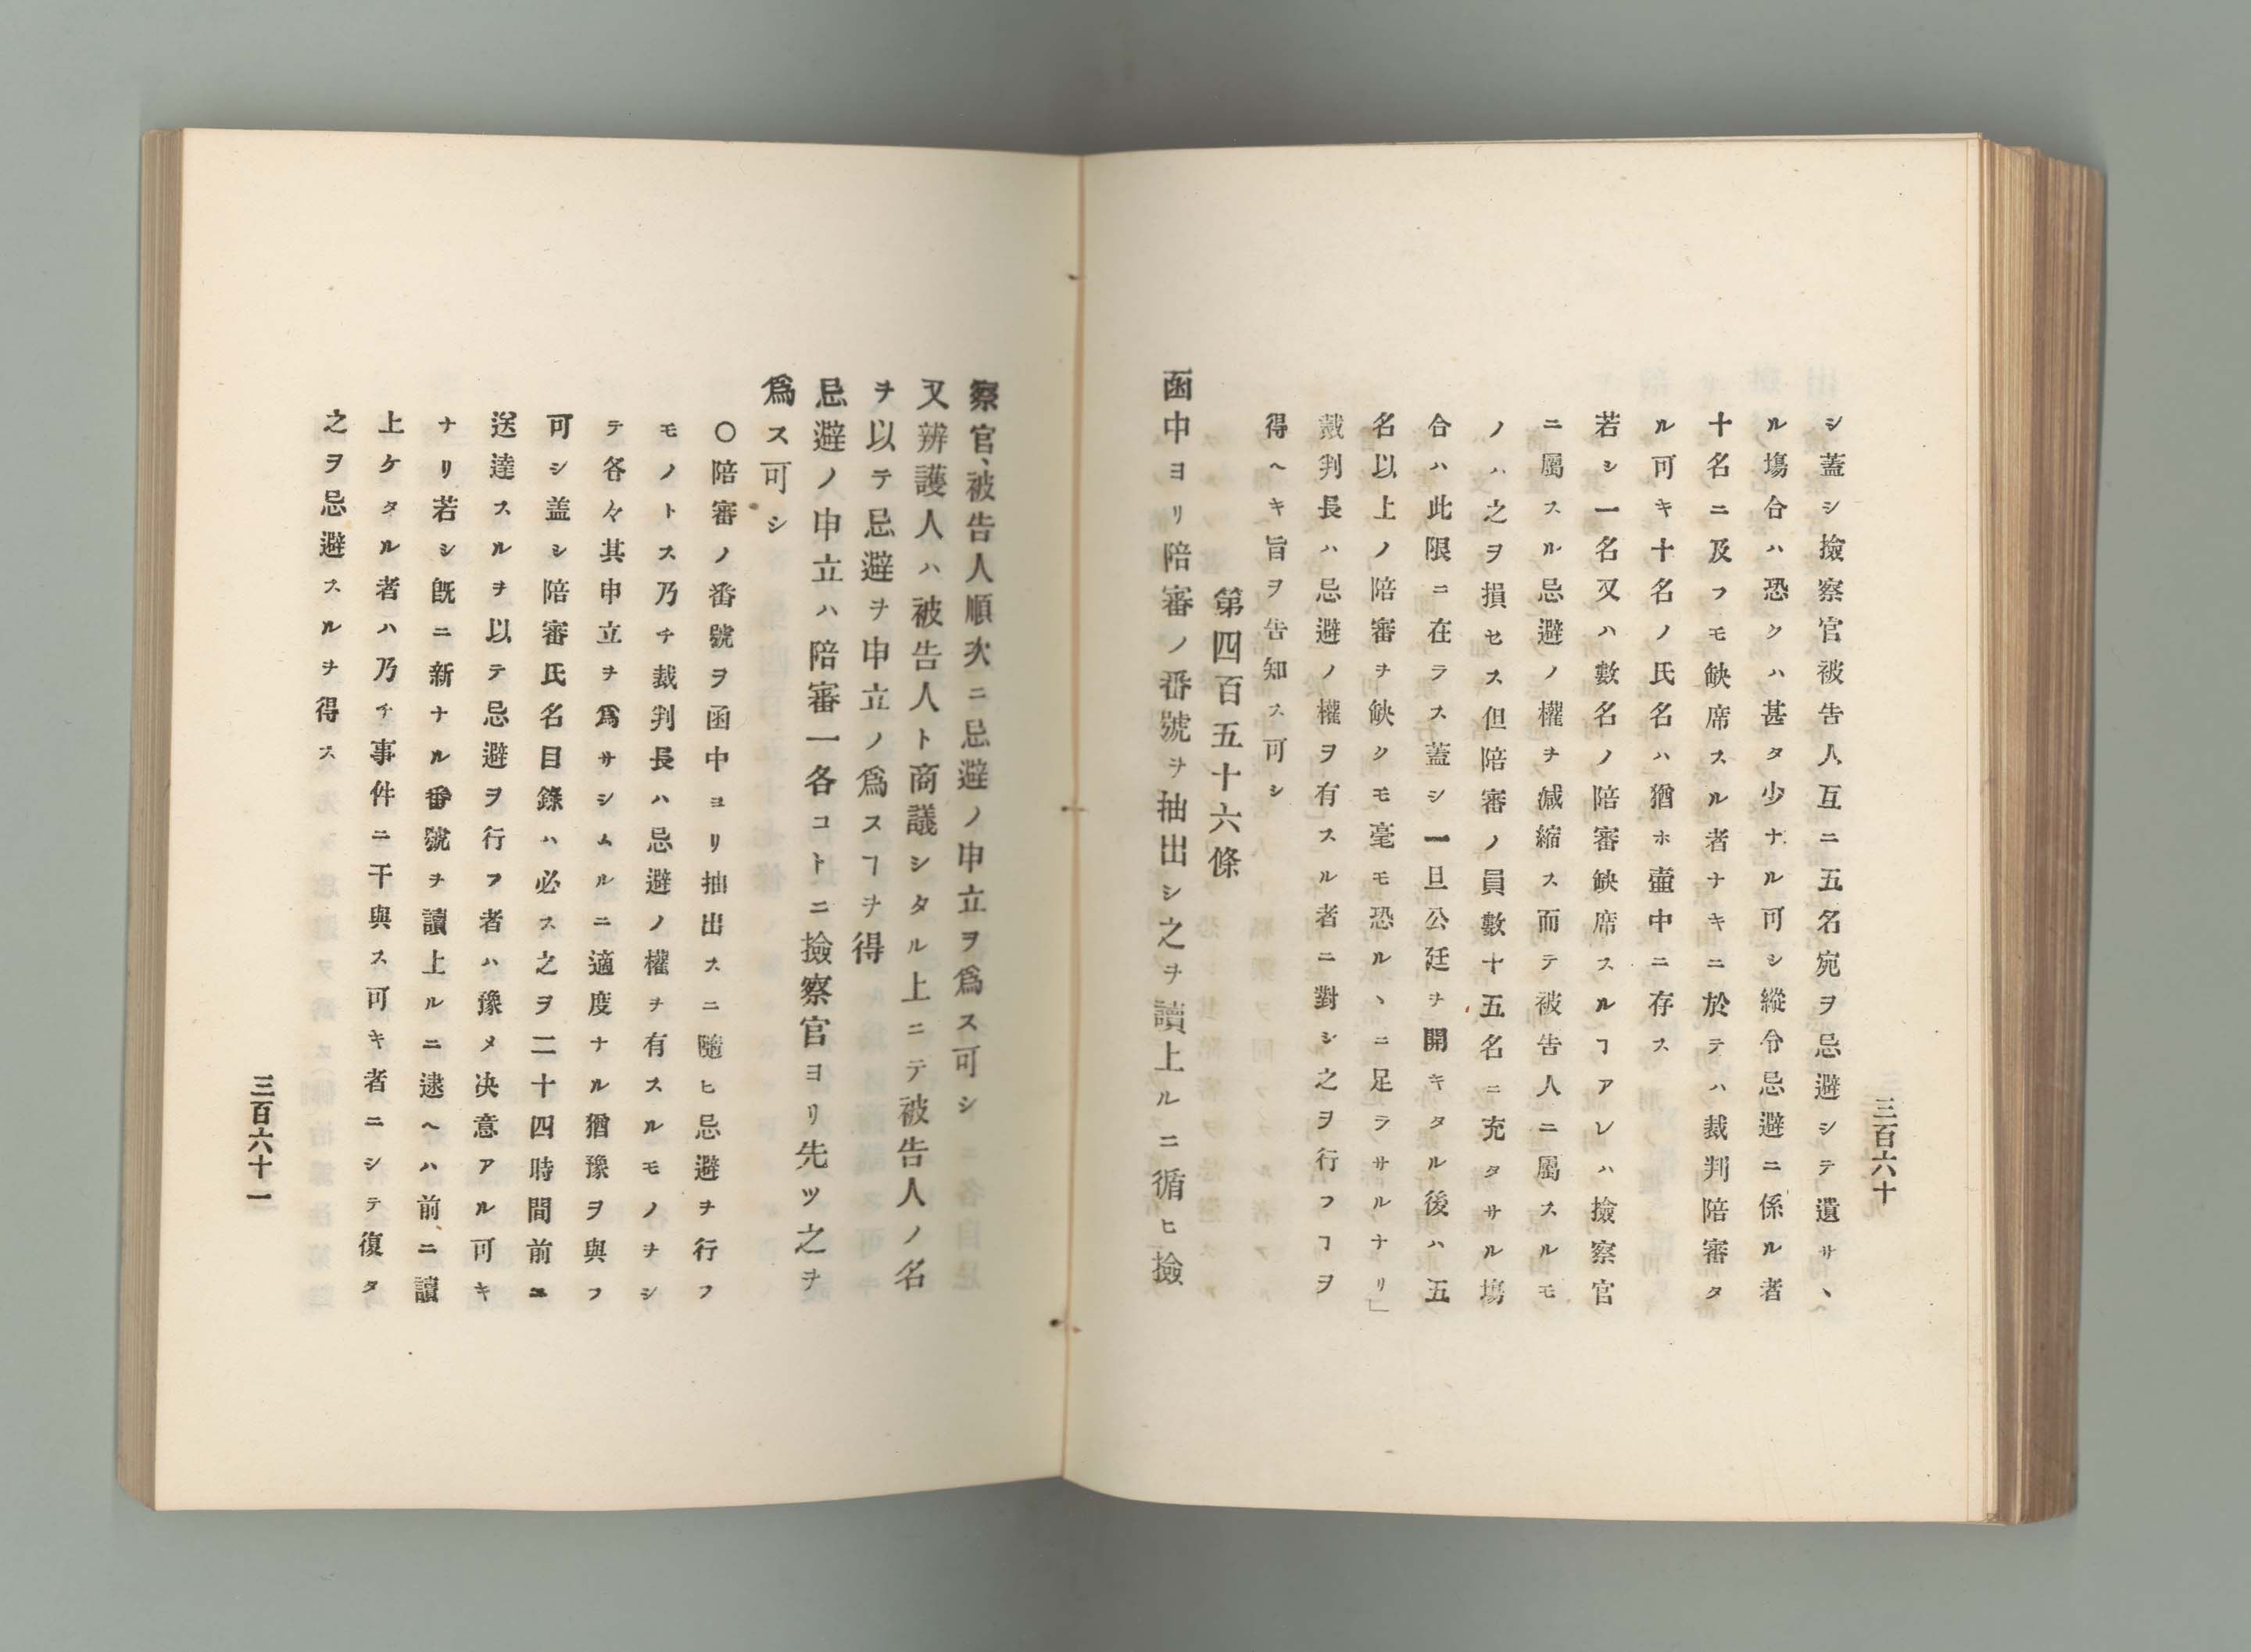 三百六十
シ蓋シ撿察官被告人互ニ五名宛ヲ忌避シテ遺サヽ
ル塲合ハ恐クハ甚タ少ナル可シ縱令忌避ニ係ル者
十名ニ及フモ缺席スル者ナキニ於テハ裁判陪審タ
ル可キ十名ノ氏名ハ猶ホ壷中ニ存ス
若シ一名又ハ數名ノ陪審缺席スルヿアレハ撿察官
ニ屬スル忌避ノ權ヲ減縮ス而テ被告人ニ屬スルモ
ノハ之ヲ損セス但陪審ノ員數十五名ニ充タサル塲
合ハ此限ニ在ラス蓋シ一旦公廷ヲ開キタル後ハ五
名以上ノ陪審ヲ缺クモ毫モ恐ルヽニ足ラサルナリ」
裁判長ハ忌避ノ權ヲ有スル者ニ對シ之ヲ行フヿヲ
得ヘキ旨ヲ告知ス可シ
第四百五十六條
函中ヨリ陪審ノ番號ヲ抽出シ之ヲ讀上ルニ循ヒ撿
察官、被告人順次ニ忌避ノ申立ヲ爲ス可シ
又辨護人ハ被告人ト商議シタル上ニテ被告人ノ名
ヲ以テ忌避ヲ申立ノ爲スヿヲ得
忌避ノ申立ハ陪審一各コトニ撿察官ヨリ先ツ之ヲ
爲ス可シ
〇陪審ノ番號ヲ函中ヨリ抽出スニ隨ヒ忌避ヲ行フ
モノトス乃チ裁判長ハ忌避ノ權ヲ有スルモノヲシ
テ各々其申立ヲ爲サシムルニ適度ナル猶豫ヲ與フ
可シ盖シ陪審氏名目錄ハ必ス之ヲ二十四時間前ニ
送達スルヲ以テ忌避ヲ行フ者ハ豫メ决意アル可キ
ナリ若シ既ニ新ナル番號ヲ讀上ルニ逮ヘハ前ニ讀
上ケタル者ハ乃チ事件ニ干與ス可キ者ニシテ復タ
之ヲ忌避スルヲ得ス
三百六十一